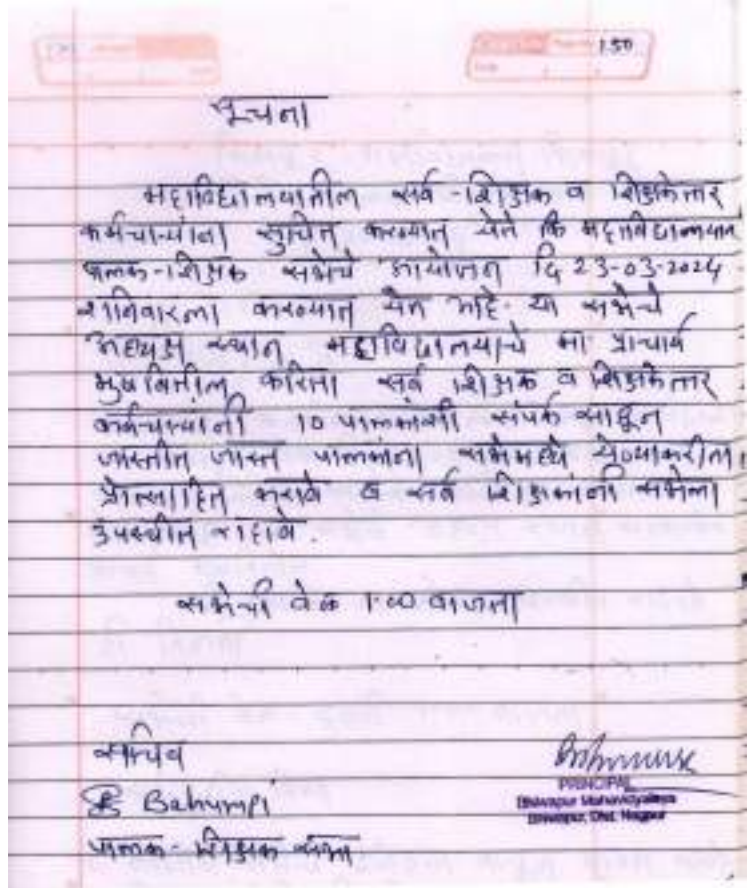 150
सूचना
महाविद्यालयातील सर्व शिक्षक व शिक्षकेत्तर
कर्मचाऱ्यांना सुचित करण्यात येते कि महाविद्यालयात
पालक-शिक्षक सभेचे आयोजन दि 23-03-2024
शनिवारला करण्यात येत आहे. या सभेचे
अध्यक्ष स्थान महाविद्यालयाचे मा. प्राचार्य
भुषवितील करिता सर्व शिक्षक व शिक्षकेत्तर
कर्मचाऱ्यांनी 10 पालकांशी संपर्क साधून
जास्तीत जास्त पालकांना सभेमध्ये येण्याकरीता
प्रोत्साहित करावे व सर्व शिक्षकांनी सभेला
उपस्थीत राहावे.
सभेची वेळ 1.00 वाजता
सचिव
पालक-शिक्षक सभा
PRINCIPAL
Bhiwapur Mahavidyalaya
Bhiwapur, Dist. Nagpur